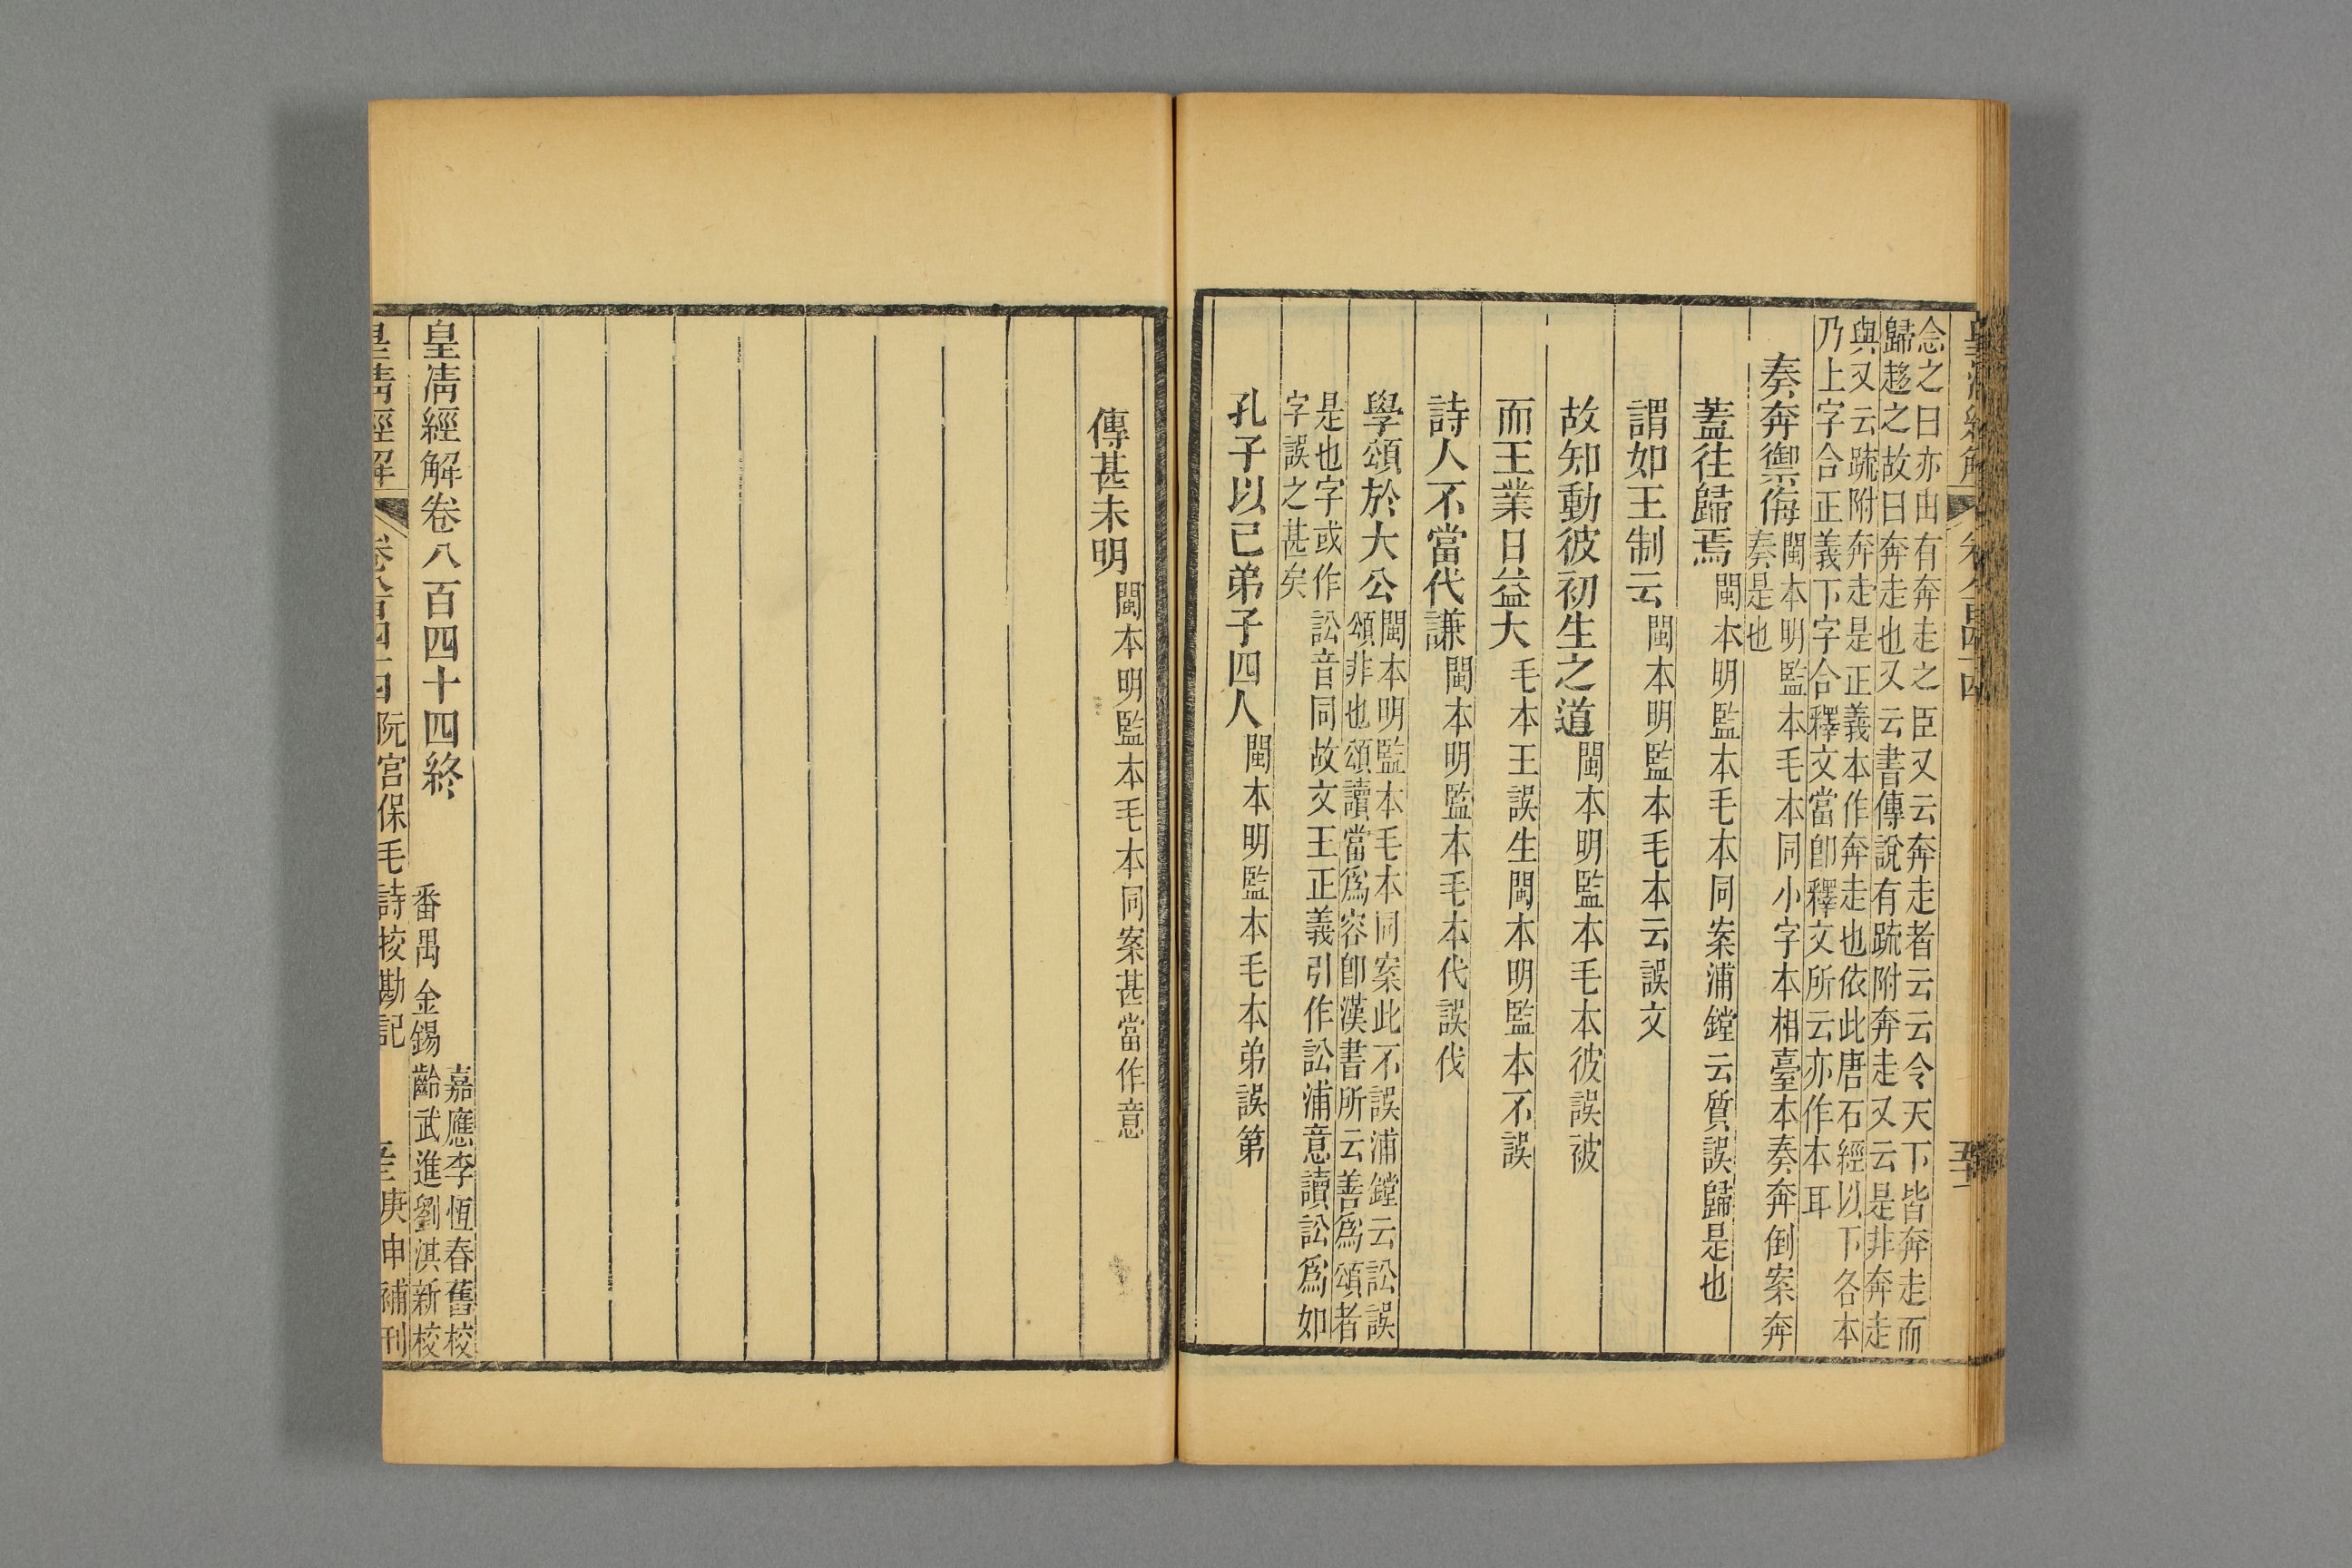 念之曰亦由有奔走之臣又云奔走者云云令天下皆奔走而
歸趍之故曰奔走也又云書傳說有疏附奔走又云是非奔走
與又云疏附奔走是正義本作奔走也依此唐石經以下各本
乃上字合正義下字合釋文當卽釋文所云亦作本耳
奏奔禦侮
閩本明監本毛本同小字本相臺本奏奔倒案奔
奏是也
蓋往歸焉閩本明監本毛本同案浦鏜云質誤歸是也
謂如王制云閩本明監本毛本云誤文
故知動彼初生之道閩本明監本毛本彼誤被
而王業日益大毛本王誤生閩本明監本不誤
詩人不當代謙閩本明監本毛本代誤伐
學頌於大公
閩本明監本毛本同案此不誤浦鏜云訟誤
頌非也頌讀當爲容卽漢書所云善爲頌者
是也字或作訟音同故文王正義引作訟浦意讀訟爲如
字誤之甚矣
孔子以已弟子四人閩本明監本毛本弟誤第
傳甚未明閩本明監本毛本同案甚當作意
皇淸經解卷八百四十四終
嘉應李恆春舊校
番禺金錫齡武進劉淇新校
皇淸經解
阮宮保毛詩校勘記
庚申補刊